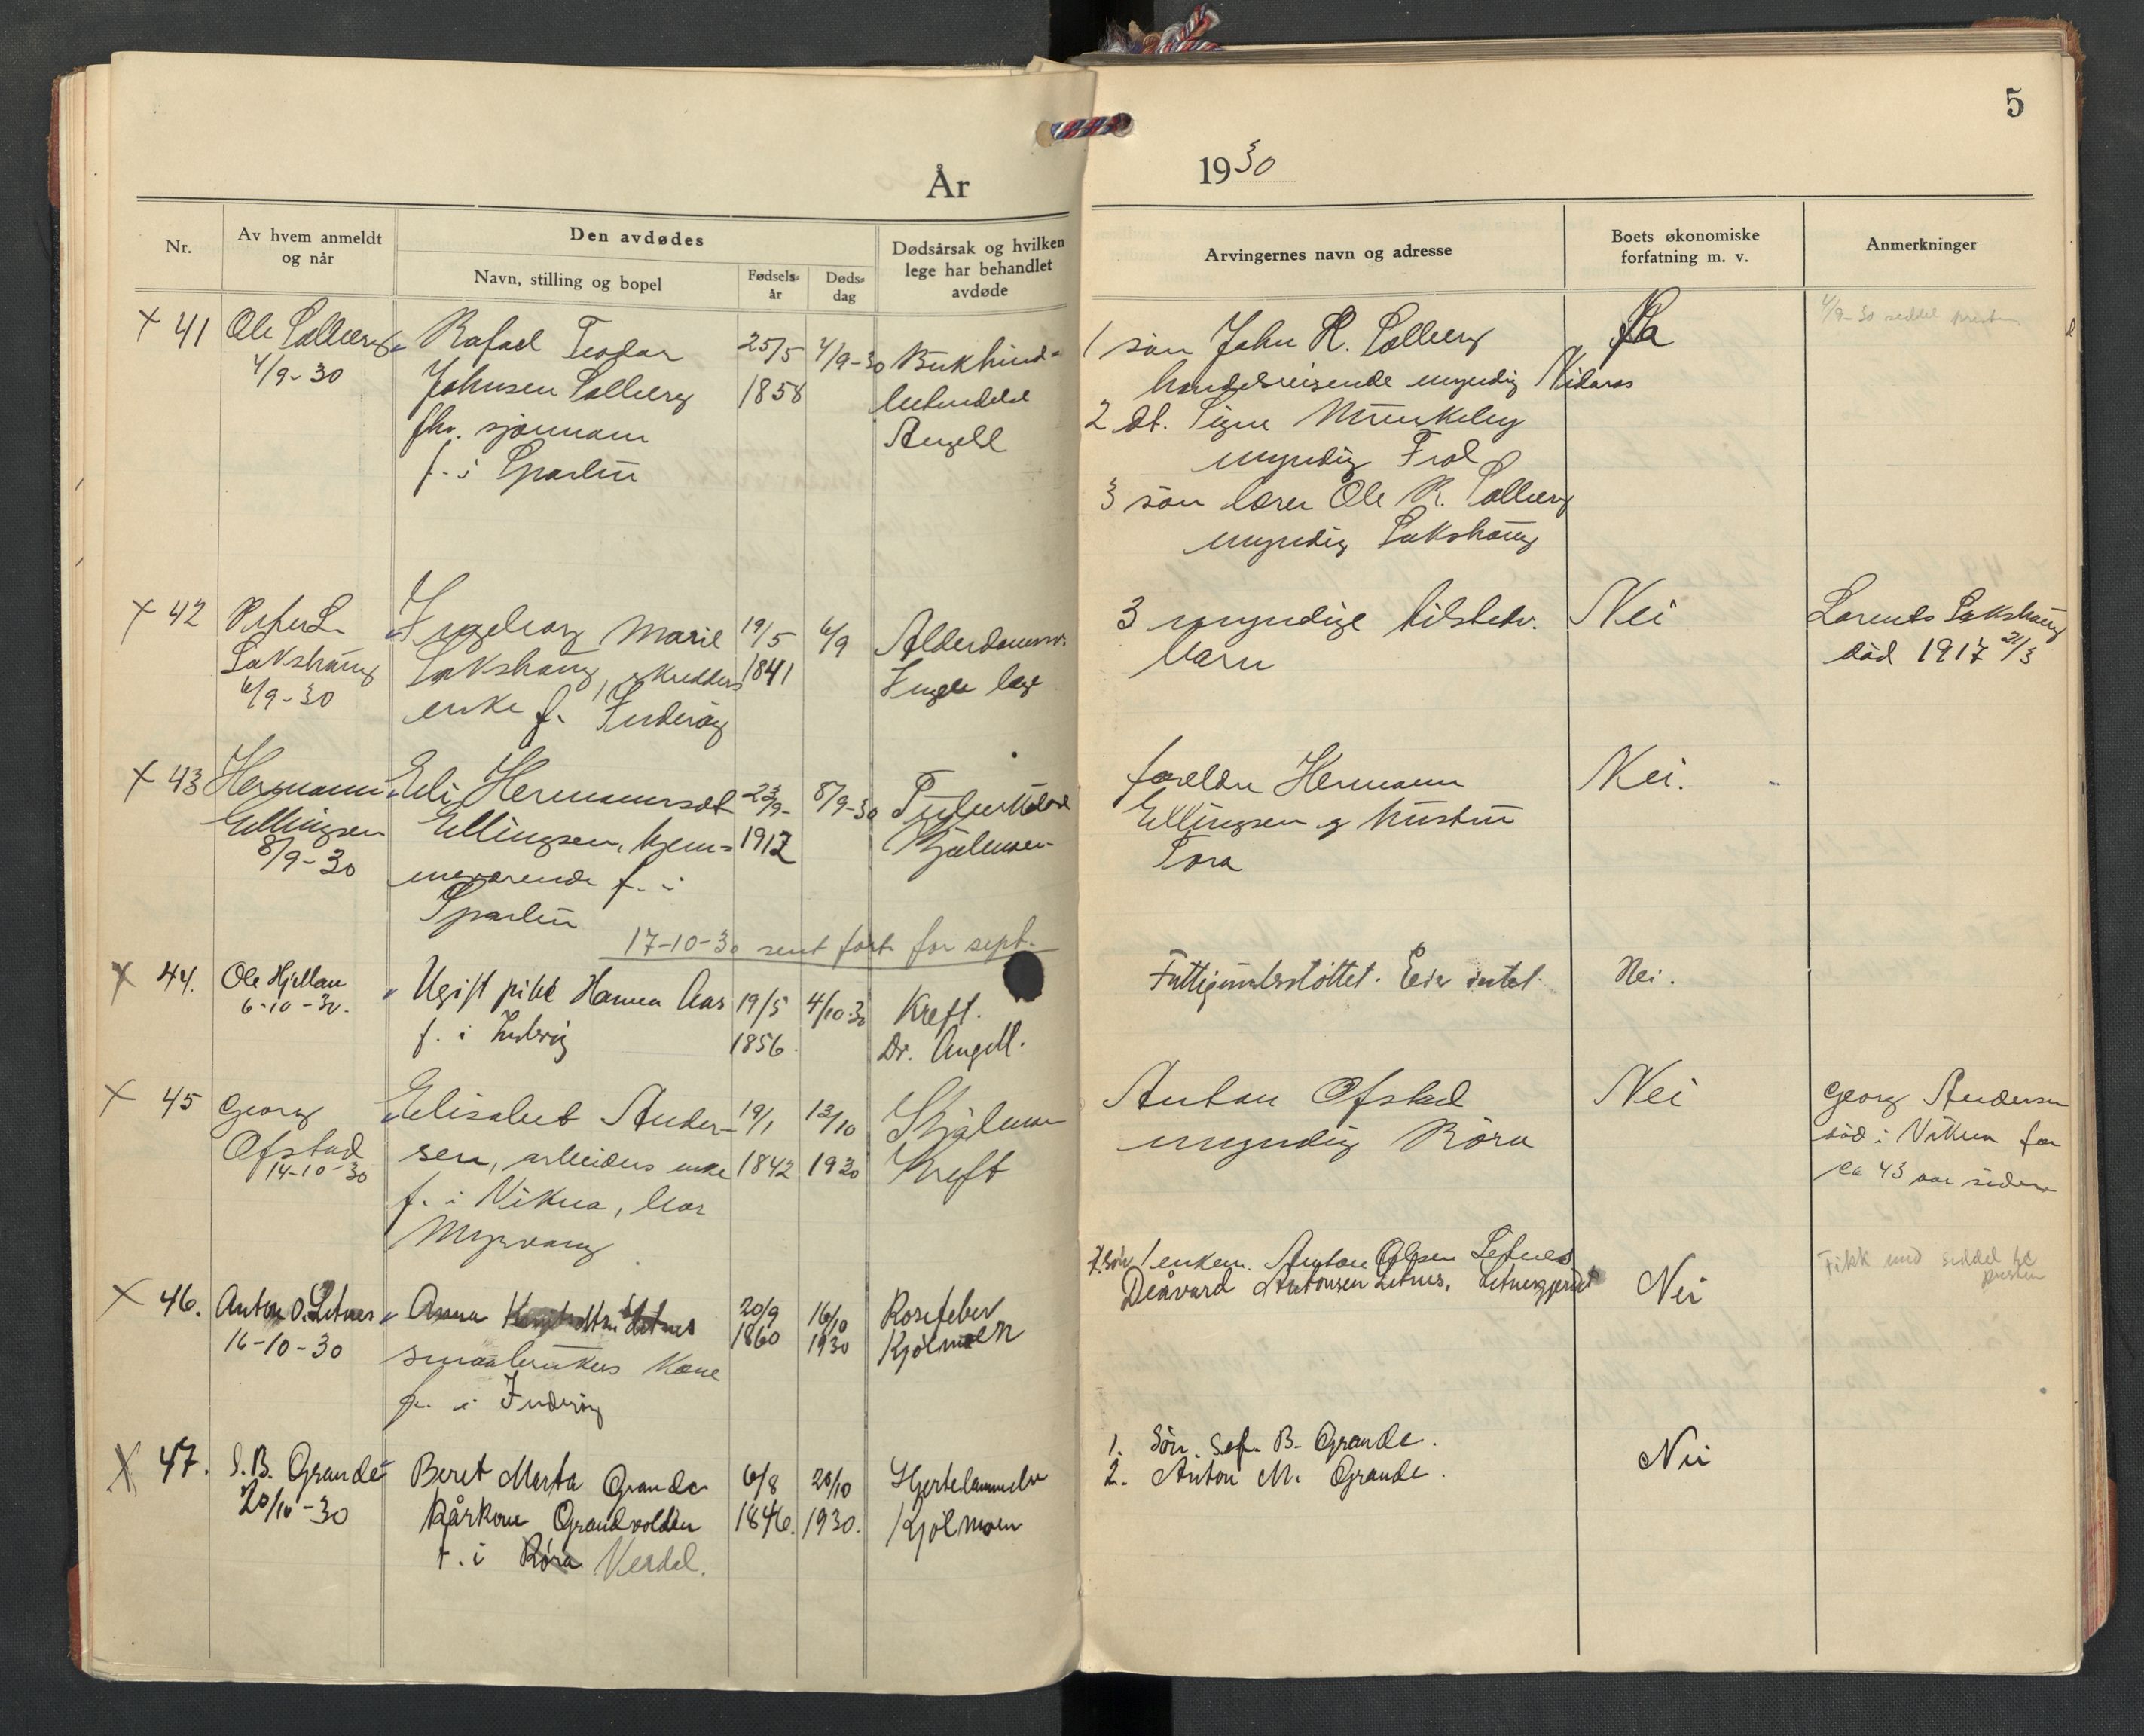 5
År
1930
Nr.
Av hvem anmeldt
og når
Den avdødes
Navn, stilling og bopel
Fødsels-
år
Døds-
dag
Dødsårsak og hvilken
lege har behandlet
avdøde
Arvingernes navn og adresse
Boets økonomiske
forfatning m. v.
Anmerkninger
x 41
Ole Solberg
4/9-30
Rafael Teodor
Johnsen Solberg
fhv. sjømann
f. i Sparbu
25/5
1858
4/9-30
Bukhind-
betendelse
Angell
1 søn John R. Solberg
handelsreisende myndig Nidaros
2 dt. Signe Munkeby
myndig Frol
3 søn lærer Ole R. Solberg
myndig Sakshaug
Ja
4/9-30 seddel presten
x 42
Peter L.
Sakshaug
6/9-30
Ingeborg Marie
Sakshaug, skredders
enke f. Inderøy
19/5
1841
6/9
Alderdomssv.
lege
3 myndige tilstedv.
barn
Nei
Lorents Sakshaug
død 1917 21/3
x 43
Hermann
Ellingsen
8/9-30
Eli Hermannsdt
Ellingsen, hjem-
meværende f. i
Sparbu
23/9-
1912
8/9-30
Tuberkulose
Kjølmoen
foreldre Hermann
Ellingsen og hustru
Tora
Nei.
17-10-30 sent fort. for sept.
x 44.
Ole Hjellan
6-10-30.
Ugift pike Hanna Aas
f. i Inderøy
19/5
1856.
4/10-30
Kreft.
Dr. Angell.
Fattigunderstøttet. Eier intet.
Nei.
x 45
Georg
Ofstad
14-10-30
Elisabet Ander-
sen, arbeiders enke
f. i Vikna, bor
Myrvang
19/1
1842
13/10
1930
Kjølmoen
Kreft
Anton Ofstad
myndig Röra
Nei
Georg Andersen
død i Vikna for
ca 43 aar siden
x 46.
Anton O. Letnes
16-10-30
Anna Letnes
smaabrukers kone
f. i Inderøy
20/9
1860
16/10
1930
Rosefeber
Kjølmoen
1 enkem. Anton Olsen Letnes
2. søn Denvard Antonsen Letnes, Letnesgjerdet
Nei
Fikk med seddel til
presten
x 47.
S. B. Grande
20/10-30
Beret Marta Grande
Kårkone Grandvolden
f. i Røra Verdal.
6/8
1846.
20/10
1930.
Hjertelammelse
Kjølmoen
1. Søn. Sef. B. Grande.
2. Anton M. Grande.
Nei